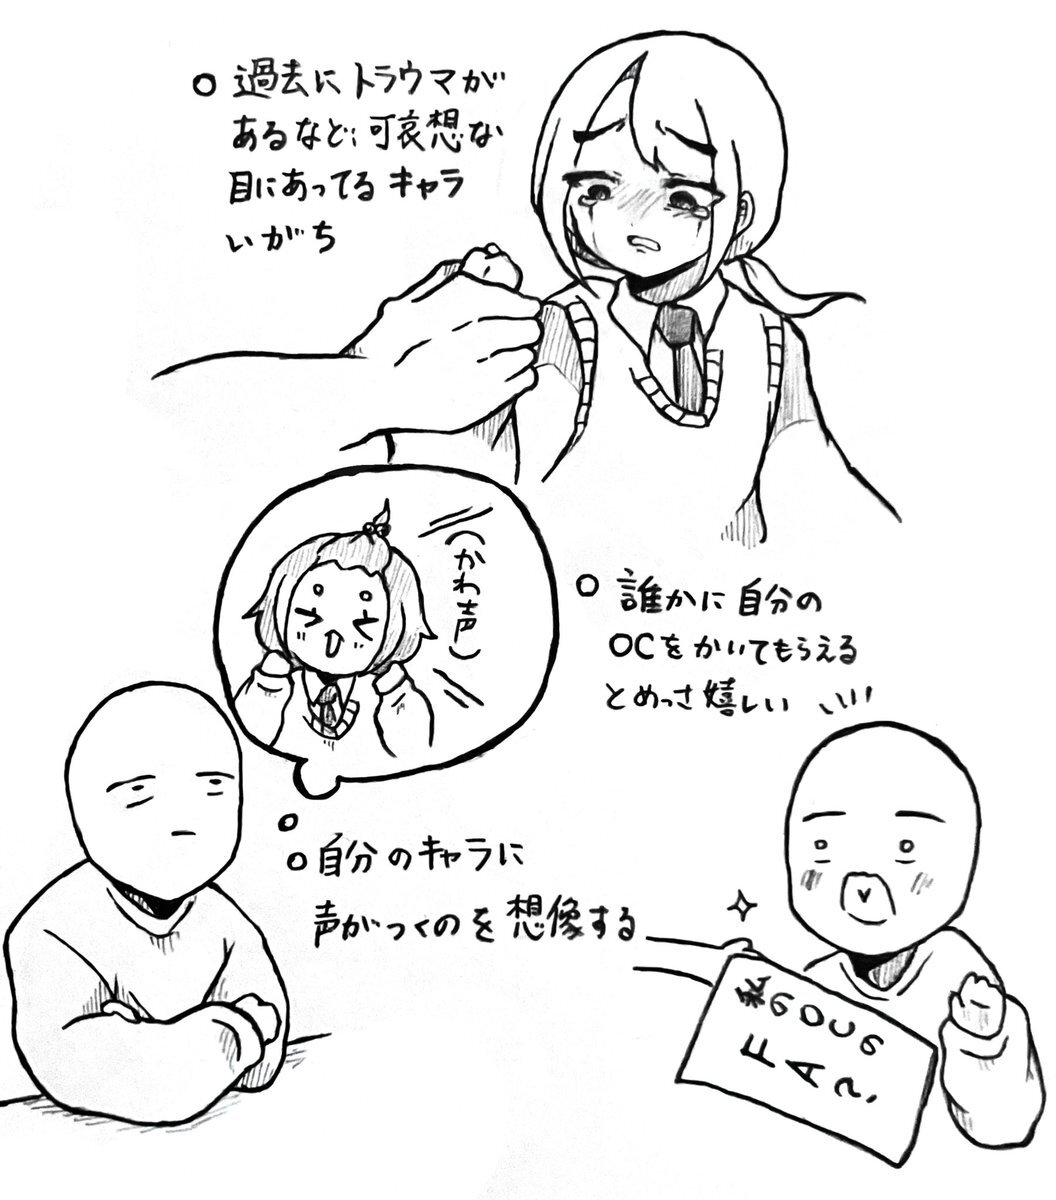 ○ 過去にトラウマが
あるなど、可哀想な
目にあってるキャラ
いがち
(かわ声)
○ 誰かに自分の
OCをかいてもらえる
とめっさ嬉しい
○ 自分のキャラに
声がつくのを想像する
私のOCの
FA?!